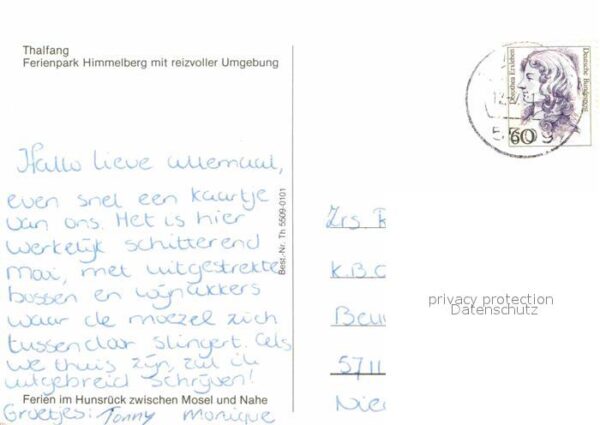 Thalfang
Ferienpark Himmelberg mit reizvoller Umgebung
Hallo lieve allemaal,
even snel een kaartje
van ons. Het is hier
werkelijk schitterend
mooi, met uitgestrekte
bossen en wijnakkers
waar de moezel zich
tussendoor slingert. Als
we thuis zijn, zal ik
uitgebreid schrijven!
Ferien im Hunsrück zwischen Mosel und Nahe
Groetjes: Tonny Monique
Best.-Nr. Th 5509-0101
Dorothea Erxleben
Deutsche Bundespost
60
Zrs
K.B.
5711
privacy protection
Datenschutz